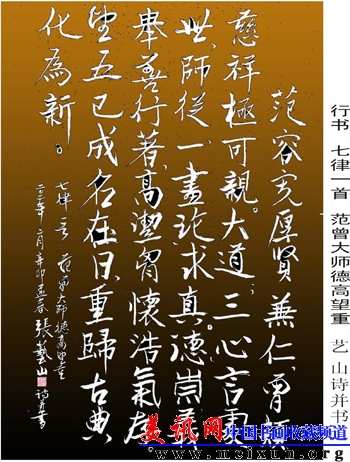 范容宽厚賢兼仁,尊颜
慈祥極可親。大道三心言
世,師從一畫論求真。德崇
舉善行著,高潔胷懷浩氣存。
望五已成名在日,重歸古典
化為新。
七律一首 范曾大师德高望重
二〇一一年二月辛卯孟春 張藝山 詩并書
行书 七律一首 范曾大师德高望重 艺 山诗并书
美讯网 中国书画收藏频道
www.meixun.org